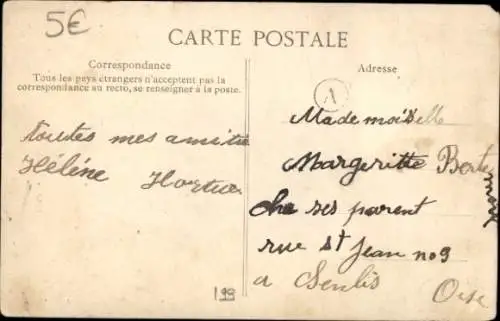 5€
CARTE POSTALE
Correspondance
Tous les pays étrangers n'acceptent pas la
correspondance au recto, se renseigner à la poste.
toutes mes amitié
Hélène
Adresse
A
Mademoiselle
Margeritte Berte
che ses parent
rue st Jean no 9
a Senlis Oise
199